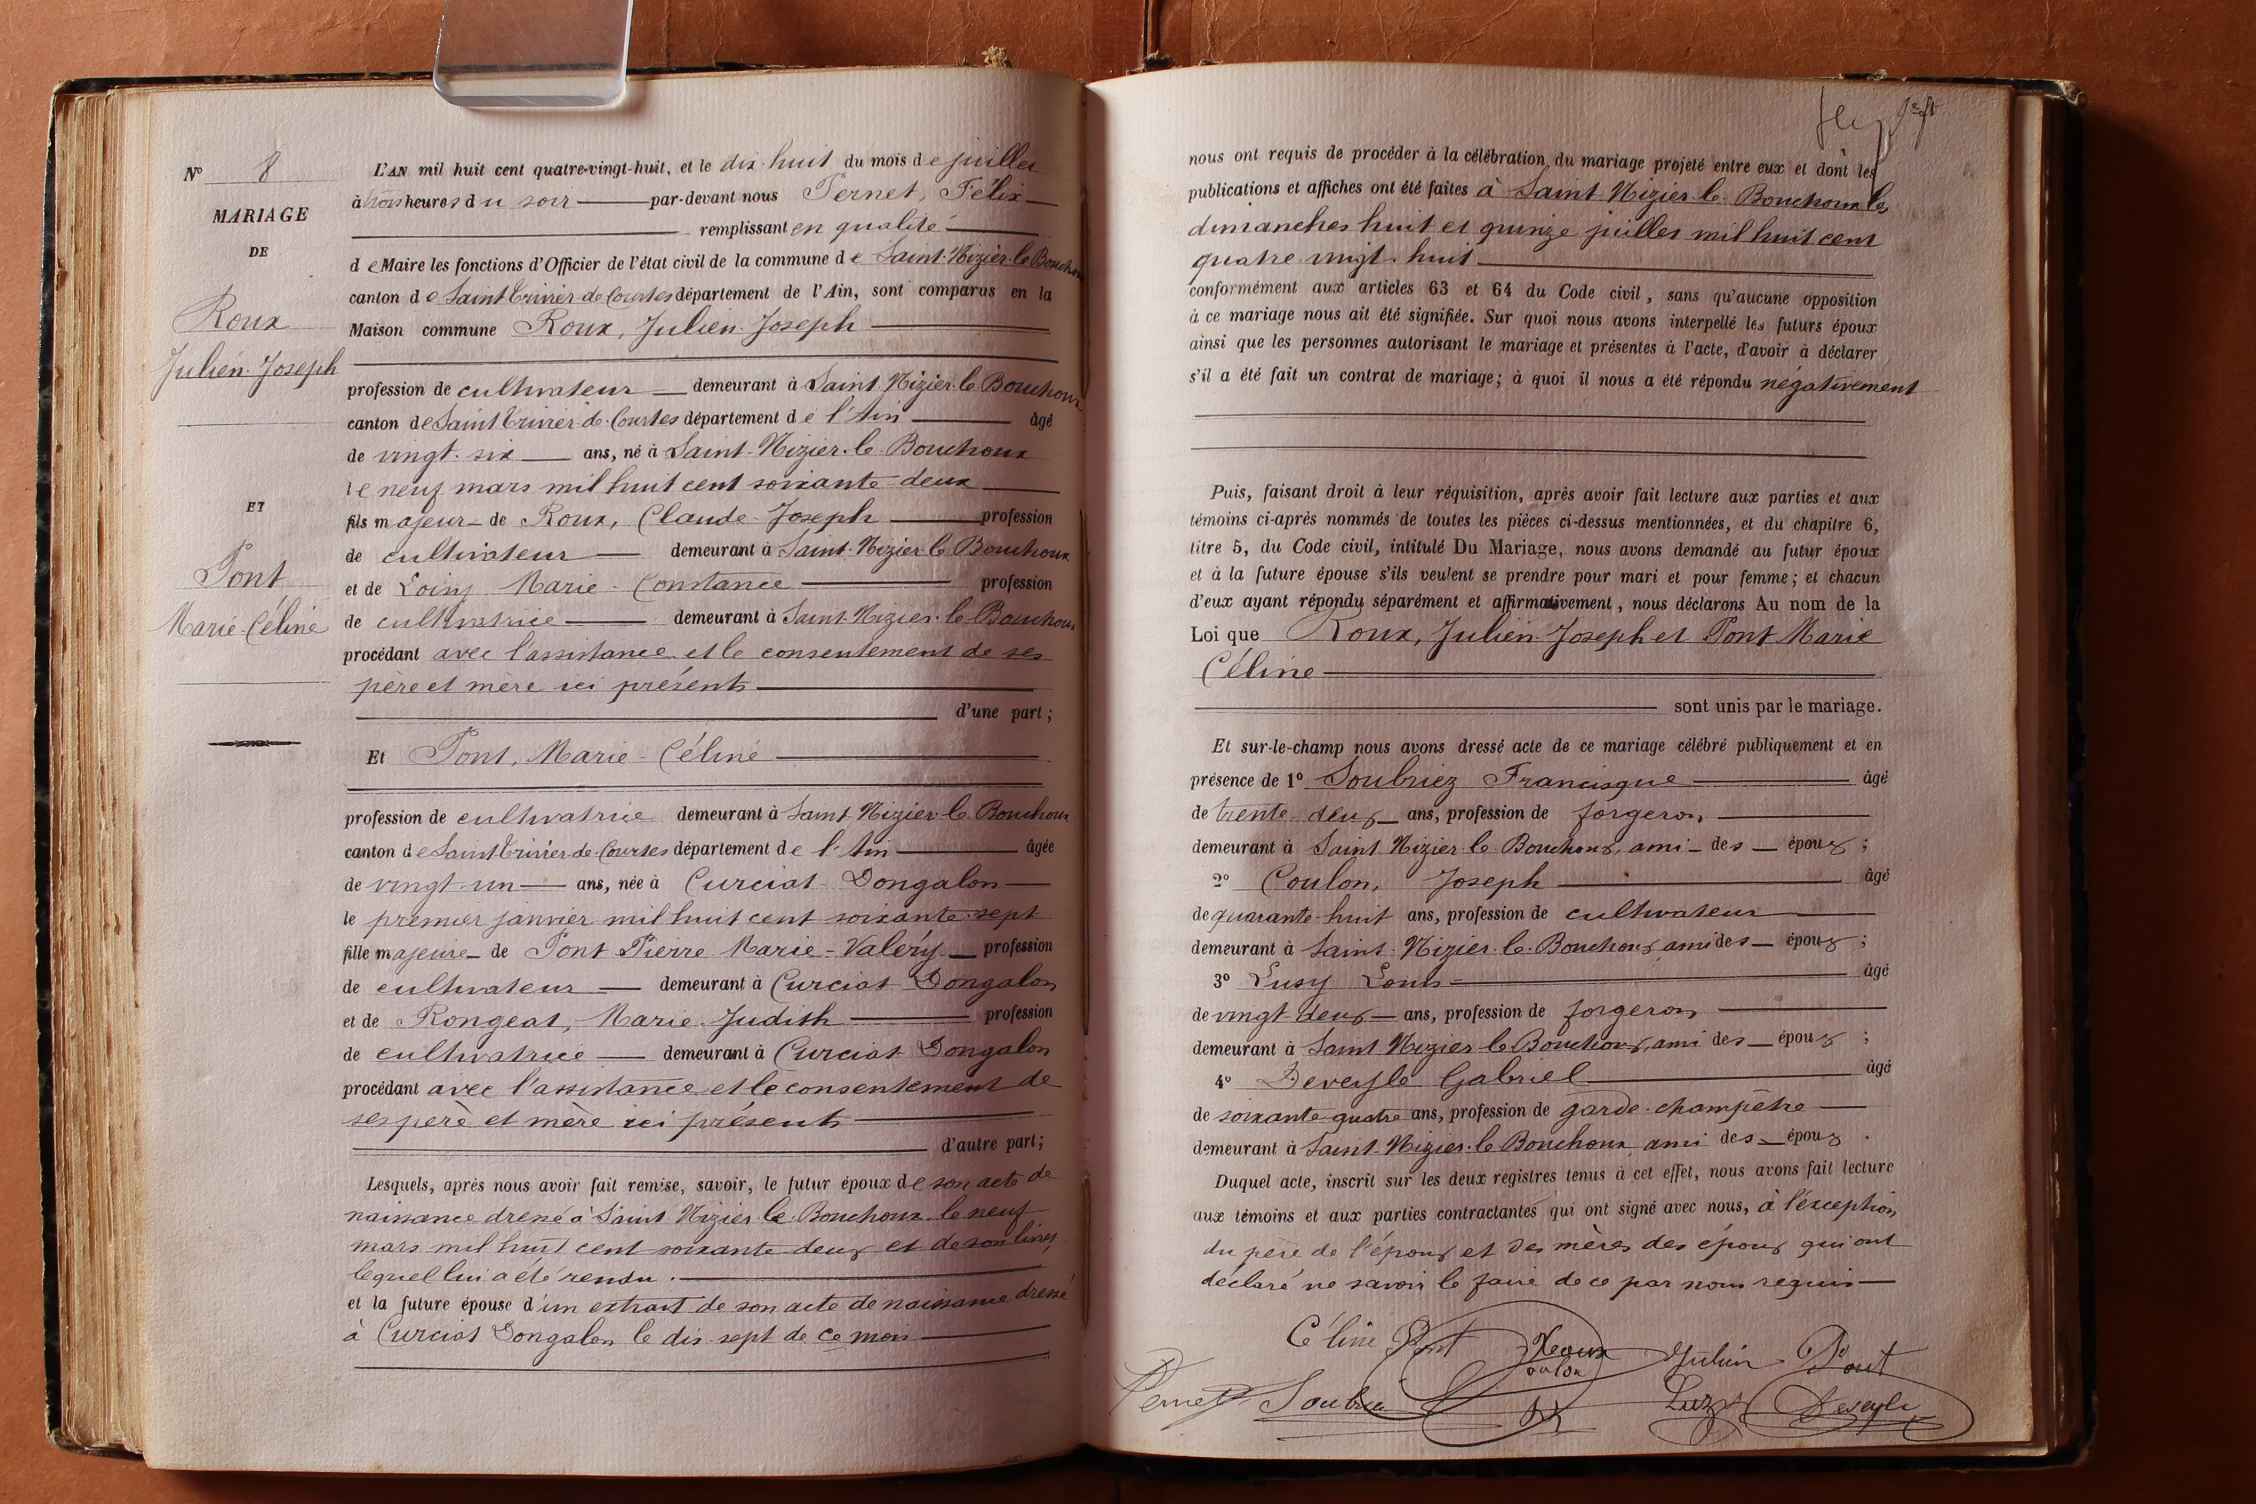 N° 8
MARIAGE
DE
Roux
Julien Joseph
ET
Pont
Marie Céline
L'AN mil huit cent quatre-vingt-huit, et le dix-huit du mois de juillet
à trois heures du soir par-devant nous Pernet, Félix
remplissant en qualité
de Maire les fonctions d'Officier de l'état civil de la commune de Saint-Nizier-le-Bouchoux
canton de Saint Trivier-de-Courtes département de l'Ain, sont comparus en la
Maison commune Roux, Julien Joseph
profession de cultivateur demeurant à Saint-Nizier-le-Bouchoux
canton de Saint Trivier-de-Courtes département de l'Ain âgé
de vingt-six ans, né à Saint-Nizier-le-Bouchoux
le neuf mars mil huit cent soixante-deux
fils majeur de Roux, Claude Joseph profession
de cultivateur demeurant à Saint-Nizier-le-Bouchoux
et de Loisy Marie-Constance profession
de cultivatrice demeurant à Saint-Nizier-le-Bouchoux
procédant avec l'assistance et le consentement de ses
père et mère ici présents
d'une part;
Et Pont, Marie-Céline
profession de cultivatrice demeurant à Saint-Nizier-le-Bouchoux
canton de Saint Trivier-de-Courtes département de l'Ain âgée
de vingt-un ans, née à Curciat-Dongalon
le premier janvier mil huit cent soixante-sept
fille majeure de Pont Pierre Marie-Valéry profession
de cultivateur demeurant à Curciat Dongalon
et de Rongeat, Marie-Judith profession
de cultivatrice demeurant à Curciat Dongalon
procédant avec l'assistance et le consentement de
ses père et mère ici présents
d'autre part;
Lesquels, après nous avoir fait remise, savoir, le futur époux de son acte de
naissance dressé à Saint Nizier-le-Bouchoux le neuf
mars mil huit cent soixante-deux et de son livret
lequel lui a été rendu.
et la future épouse d'un extrait de son acte de naissance dressé
à Curciat Dongalon le dix-sept de ce mois
nous ont requis de procéder à la célébration du mariage projeté entre eux et dont les
publications et affiches ont été faites à Saint-Nizier-le-Bouchoux les
dimanches huit et quinze juillet mil huit cent
quatre-vingt-huit
conformément aux articles 63 et 64 du Code civil, sans qu'aucune opposition
à ce mariage nous ait été signifiée. Sur quoi nous avons interpellé les futurs époux
ainsi que les personnes autorisant le mariage et présentes à l'acte, d'avoir à déclarer
s'il a été fait un contrat de mariage; à quoi il nous a été répondu négativement
Puis, faisant droit à leur réquisition, après avoir fait lecture aux parties et aux
témoins ci-après nommés de toutes les pièces ci-dessus mentionnées, et du chapitre 6,
titre 5, du Code civil, intitulé Du Mariage, nous avons demandé au futur époux
et à la future épouse s'ils veulent se prendre pour mari et pour femme; et chacun
d'eux ayant répondu séparément et affirmativement, nous déclarons Au nom de la
Loi que Roux, Julien Joseph et Pont Marie
Céline
sont unis par le mariage.
Et sur-le-champ nous avons dressé acte de ce mariage célébré publiquement et en
présence de 1° Soubriez Francisque âgé
de trente-deux ans, profession de forgeron
demeurant à Saint-Nizier-le-Bouchoux, ami des époux;
2° Coulon, Joseph âgé
de quarante-huit ans, profession de cultivateur
demeurant à Saint-Nizier-le-Bouchoux, ami des époux;
3° Lusy Louis âgé
de vingt-deux ans, profession de forgeron
demeurant à Saint Nizier le Bouchoux, ami des époux;
4° Deveyle Gabriel âgé
de soixante-quatre ans, profession de garde-champêtre
demeurant à Saint-Nizier-le-Bouchoux, ami des époux.
Duquel acte, inscrit sur les deux registres tenus à cet effet, nous avons fait lecture
aux témoins et aux parties contractantes qui ont signé avec nous, à l'exception
du père de l'époux et des mères des époux qui ont
déclaré ne savoir le faire de ce par nous requis
Céline Pont Roux Julien Pont
Coulon
Pernet Soubrie Luzy Deveyle